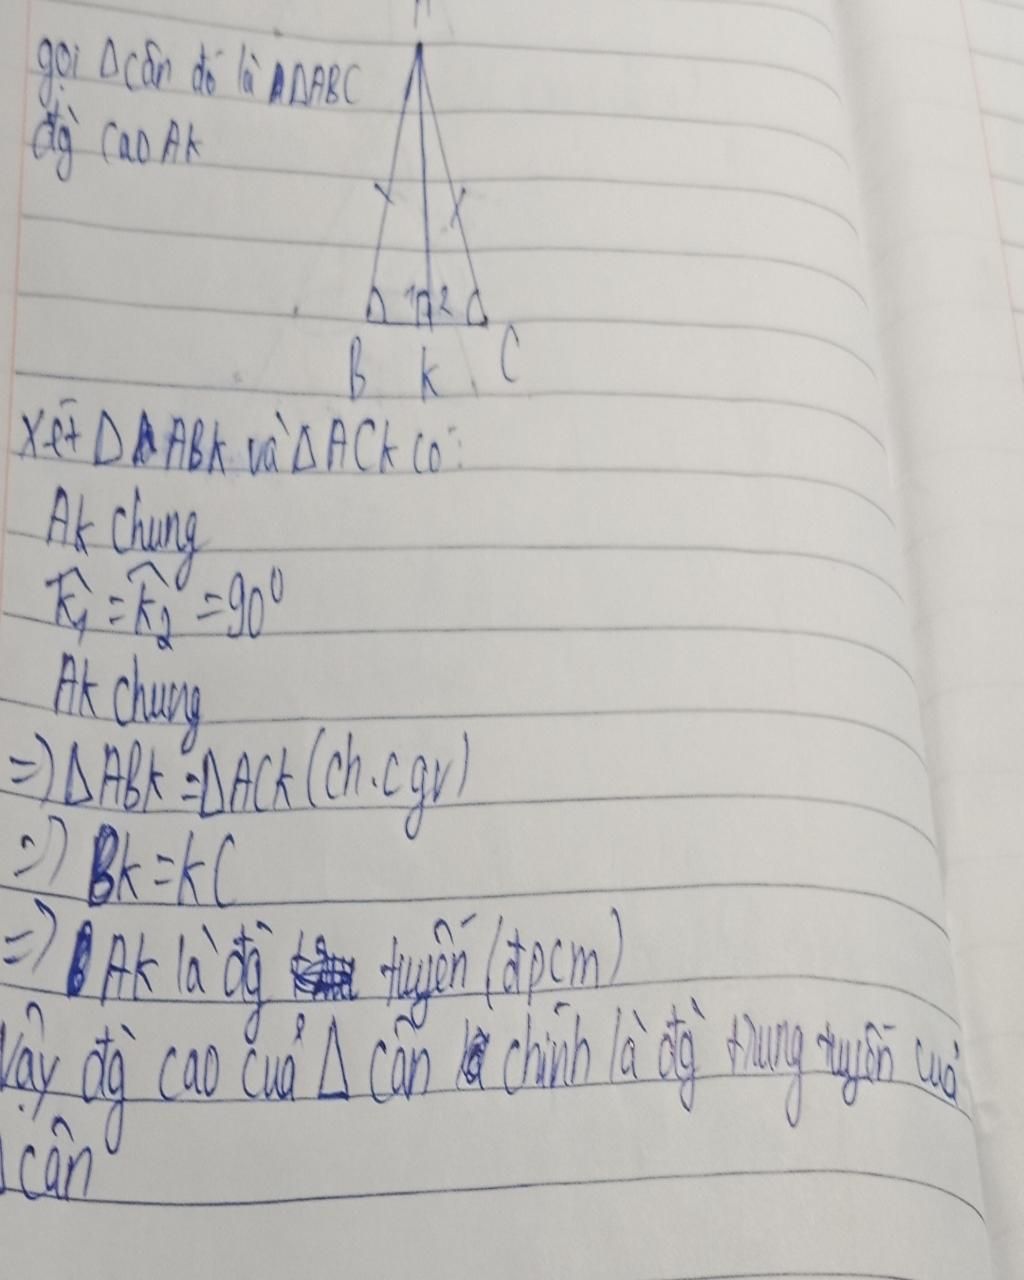 gọi Δ cân đó là ΔABC
đg` cao AK
A
1 2
B K C
Xét Δ ABK và Δ ACK có:
AK chung
K̂₁ = K̂₂ = 90⁰
AK chung
=) Δ ABK = Δ ACK (ch.cgv)
=) BK = KC
=) AK là đg` tuyến (đpcm)
Vậy đg` cao của Δ cân chính là đg` trung tuyến của
Δ cân